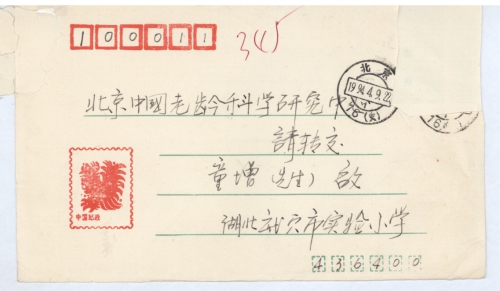 100011
345
北京
1994.4.9.22
北京中國老龄科学研究中
請转交
童增(先生)啟
中国邮政
湖北武穴市实验小学
436400